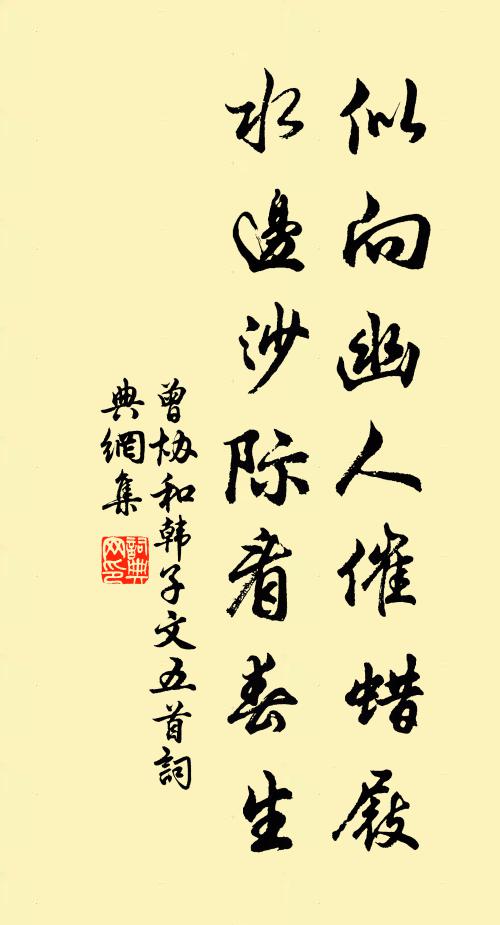 似向幽人催蜡屐
水边沙际看春生
曾协和韩子文五首詞
典網集
詞典网印